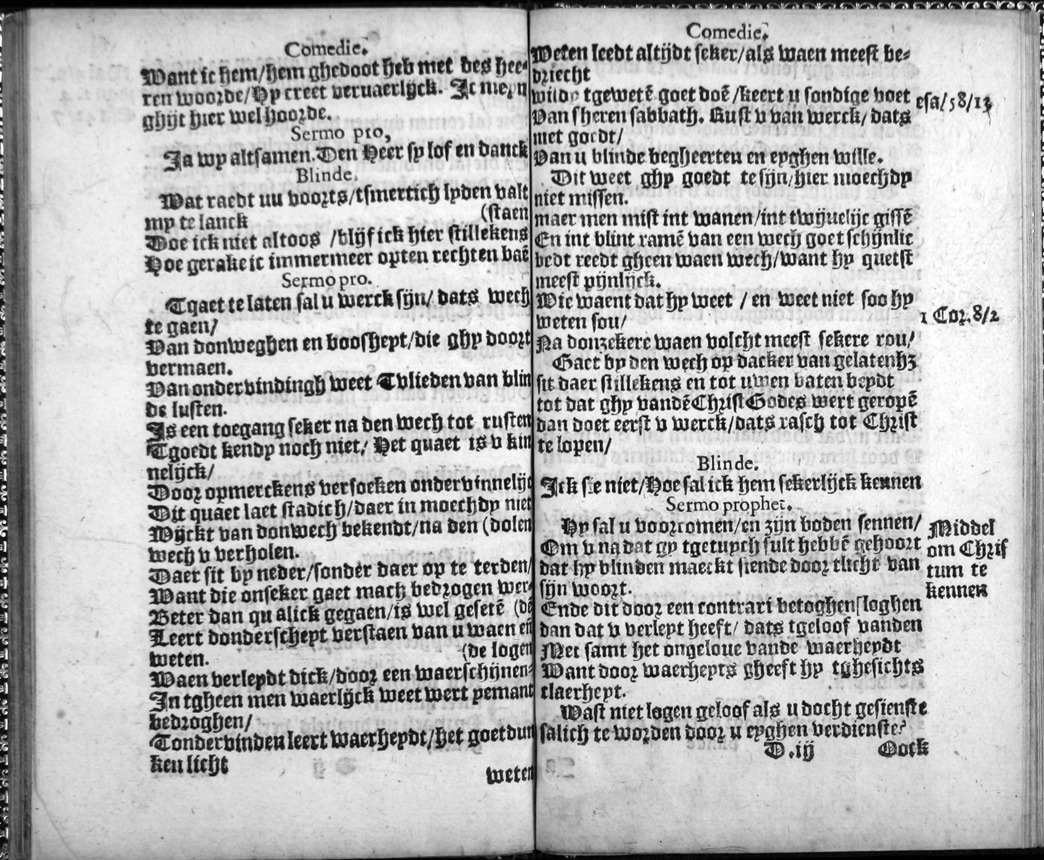 Comedie.
Want ic hem/hem ghedoot heb met des hee-
ren woorde/Hy creet vervaerlijck. Ic meyn
ghijt hier wel hoorde.
Sermo pro,
Ja wy altsamen. Den Heer sy lof en danck
Blinde.
Wat raedt nu voorts/tsmertich lyden valt
my te lanck (staen
Doe ick niet altoos /blijf ick hier stillekens
Hoe gerake ic immermeer opten rechten baē
Sermo pro.
Tqaet te laten sal u werck sijn/ dats wech
te gaen/
Van donweghen en boosheyt/die ghy doort
vermaen.
Van ondervindingh weet Tvlieden van blin
de lusten.
Is een toegang seker na den wech tot rusten
Tgoedt kendy noch niet/ Het quaet is v kin
nelijck/
Door opmerckens versoeken ondervinnelijc
Dit quaet laet stadich/daer in moechdy niet
Wijckt van donwech bekendt/na den (dolen
wech v verholen.
Daer sit by neder/sonder daer op te terden/
Want die onseker gaet mach bedrogen wer-
Beter dan qualick gegaen/is wel gesetē (dē
Leert donderscheyt verstaen van u waen eñ
weten. (de logen
Waen verleydt dick/door een waerschijnen-
In tgheen men waerlijck weet wert yemant
bedroghen/
Tondervinden leert waerheydt/het goetdun
ken licht
weten
Comedie.
Weten leedt altijdt seker/als waen meest be-
driecht
wildy tgewetē goet doē/keert u sondige voet
Van sheren sabbath. Rust v van werck/ dats
met goedt/
Van u blinde begheerten en eyghen wille.
Dit weet ghy goedt te sijn/hier moechdy
niet missen.
maer men mist int wanen/int twijuelijc gissē
En int blint ramē van een wech goet schijnlic
bedt reedt gheen waen wech/want hy quetst
meest pijnlijck.
Wie waent dat hy weet / en weet niet soo hy
weten sou/
Na donzekere waen volcht meest sekere rou/
Gaet by den wech op dacker van gelatenhz
sit daer stillekens en tot uwen baten beydt
tot dat ghy vandē Christ Godes wert geropē
dan doet eerst v werck/dats rasch tot Christ
te lopen/
Blinde.
Ick sie niet/Hoe sal ick hem sekerlijck kennen
Sermo prophet.
Hy sal u voorcomen/en zijn boden sennen/
Om v na dat gy tgetuych sult hebbē gehoort
dat hy blinden maeckt siende door tlicht van
sijn woort.
Ende dit door een contrari betoghen[loghen
dan dat v verleyt heeft/ dats tgeloof vanden
Met samt het ongeloue vande waerheydt
Want door waerheyts gheeft hy tghesichts
claerheyt.
Wast niet logen geloof als u docht gesienste
salich te worden door u eyghen verdienste?
D.ij Oock
esa/58/13
1 Cor. 8/2
Middel
om Chris
tum te
kennen